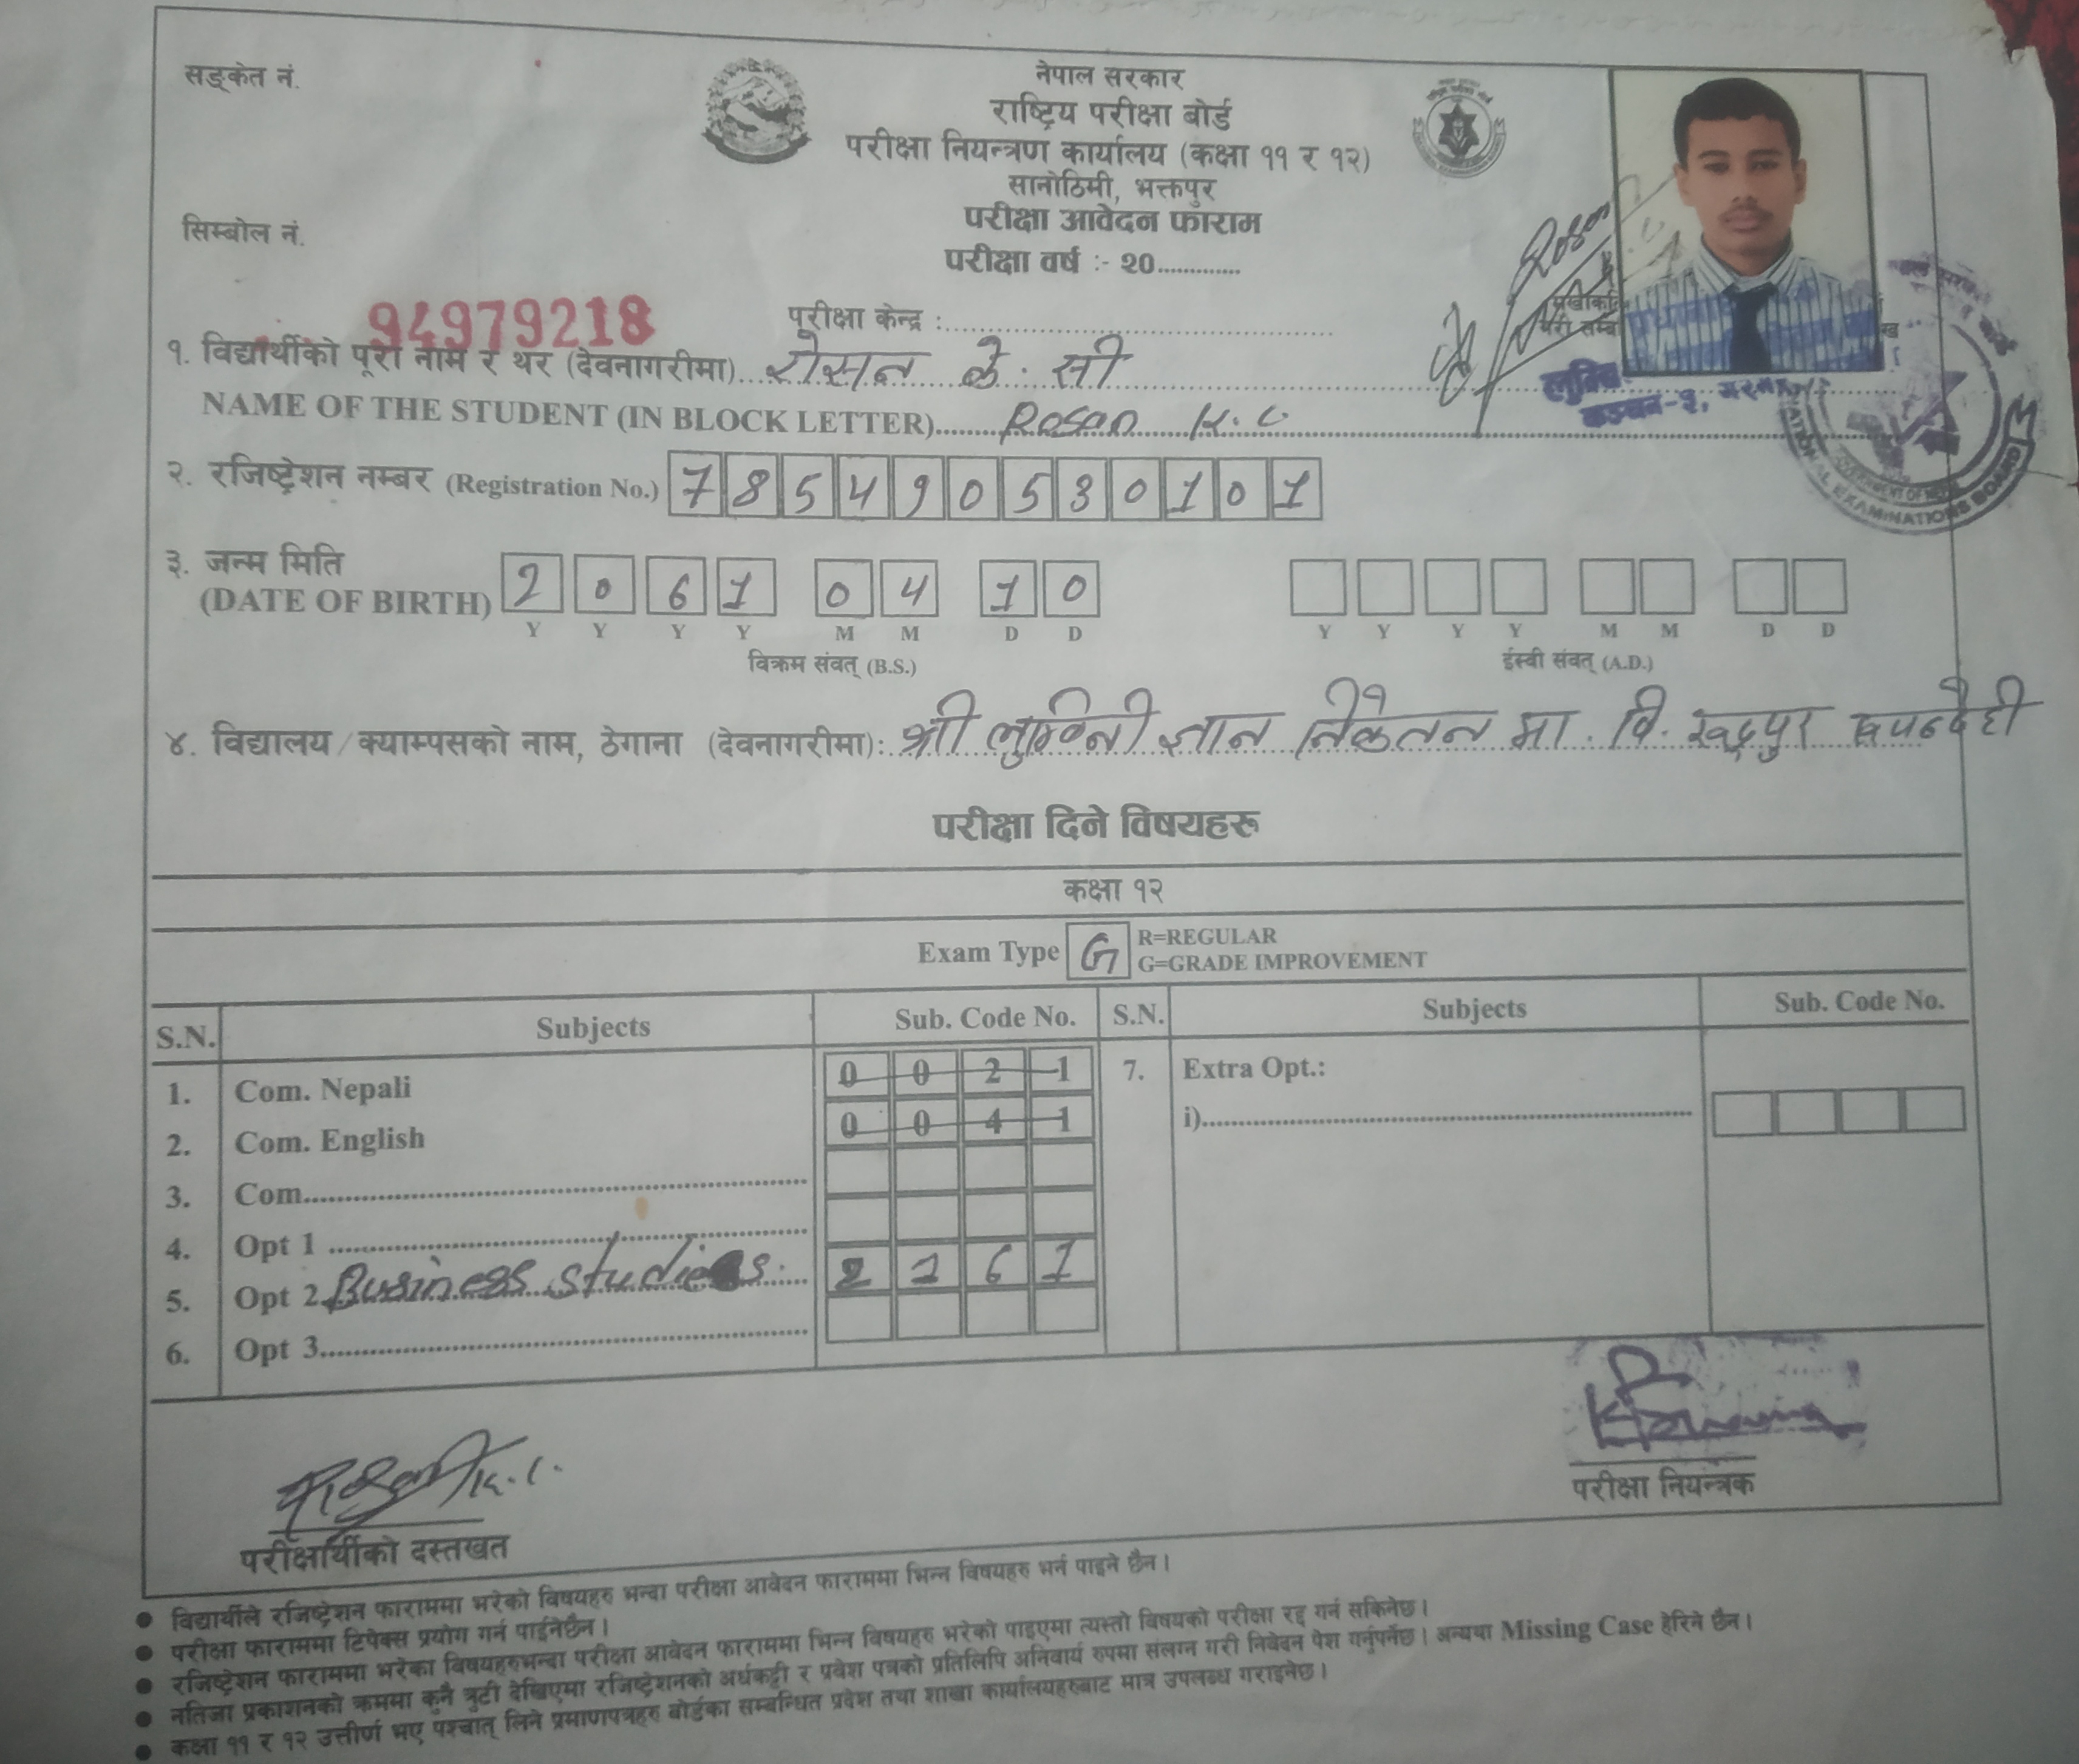 सङ्केत नं.
नेपाल सरकार
राष्ट्रिय परीक्षा बोर्ड
परीक्षा नियन्त्रण कार्यालय (कक्षा ११ र १२)
सानोठिमी, भक्तपुर
सिम्बोल नं.
परीक्षा आवेदन फाराम
परीक्षा वर्ष :- २०.............
94979218
परीक्षा केन्द्र :
१. विद्यार्थीको पूरा नाम र थर (देवनागरीमा) रोसन के. सी
NAME OF THE STUDENT (IN BLOCK LETTER) Rosan K.C
NATIONAL EXAMINATIONS BOARD
२. रजिष्ट्रेशन नम्बर (Registration No.) 7 8 5 4 9 0 5 3 0 1 0 1
३. जन्म मिति
(DATE OF BIRTH) 2 0 6 1 0 4 1 0
Y Y Y Y M M D D Y Y Y Y M M D D
विक्रम संवत् (B.S.) ईस्वी संवत् (A.D.)
४. विद्यालय/क्याम्पसको नाम, ठेगाना (देवनागरीमा): श्री लुम्बिनी ज्ञान निकेतन मा. वि. रुद्रपुर रुपन्देही
परीक्षा दिने विषयहरू
कक्षा १२
Exam Type G R=REGULAR
G=GRADE IMPROVEMENT
S.N. Subjects Sub. Code No. S.N. Subjects Sub. Code No.
1. Com. Nepali 0 0 2 1 7. Extra Opt.:
2. Com. English 0 0 4 1 i)
3. Com
4. Opt 1
5. Opt 2 Business studies 2 1 6 1
6. Opt 3
K.C.
परीक्षार्थीको दस्तखत
परीक्षा नियन्त्रक
● विद्यार्थीले रजिष्ट्रेशन फाराममा भरेको विषयहरु भन्दा परीक्षा आवेदन फाराममा भिन्न विषयहरु भर्न पाइने छैन।
● परीक्षा फाराममा टिपेक्स प्रयोग गर्न पाईनेछैन।
● रजिष्ट्रेशन फाराममा भरेका विषयहरुभन्दा परीक्षा आवेदन फाराममा भिन्न विषयहरु भरेको पाइएमा त्यस्तो विषयको परीक्षा रद्द गर्न सकिनेछ।
● नतिजा प्रकाशनको क्रममा कुनै त्रुटी देखिएमा रजिष्ट्रेशनको अर्धकट्टी र प्रवेश पत्रको प्रतिलिपि अनिवार्य रुपमा संलग्न गरी निवेदन पेश गर्नुपर्नेछ। अन्यथा Missing Case हेरिने छैन।
● कक्षा ११ र १२ उत्तीर्ण भए पश्चात् लिने प्रमाणपत्रहरु बोर्डका सम्बन्धित प्रदेश तथा शाखा कार्यालयहरुबाट मात्र उपलब्ध गराइनेछ।